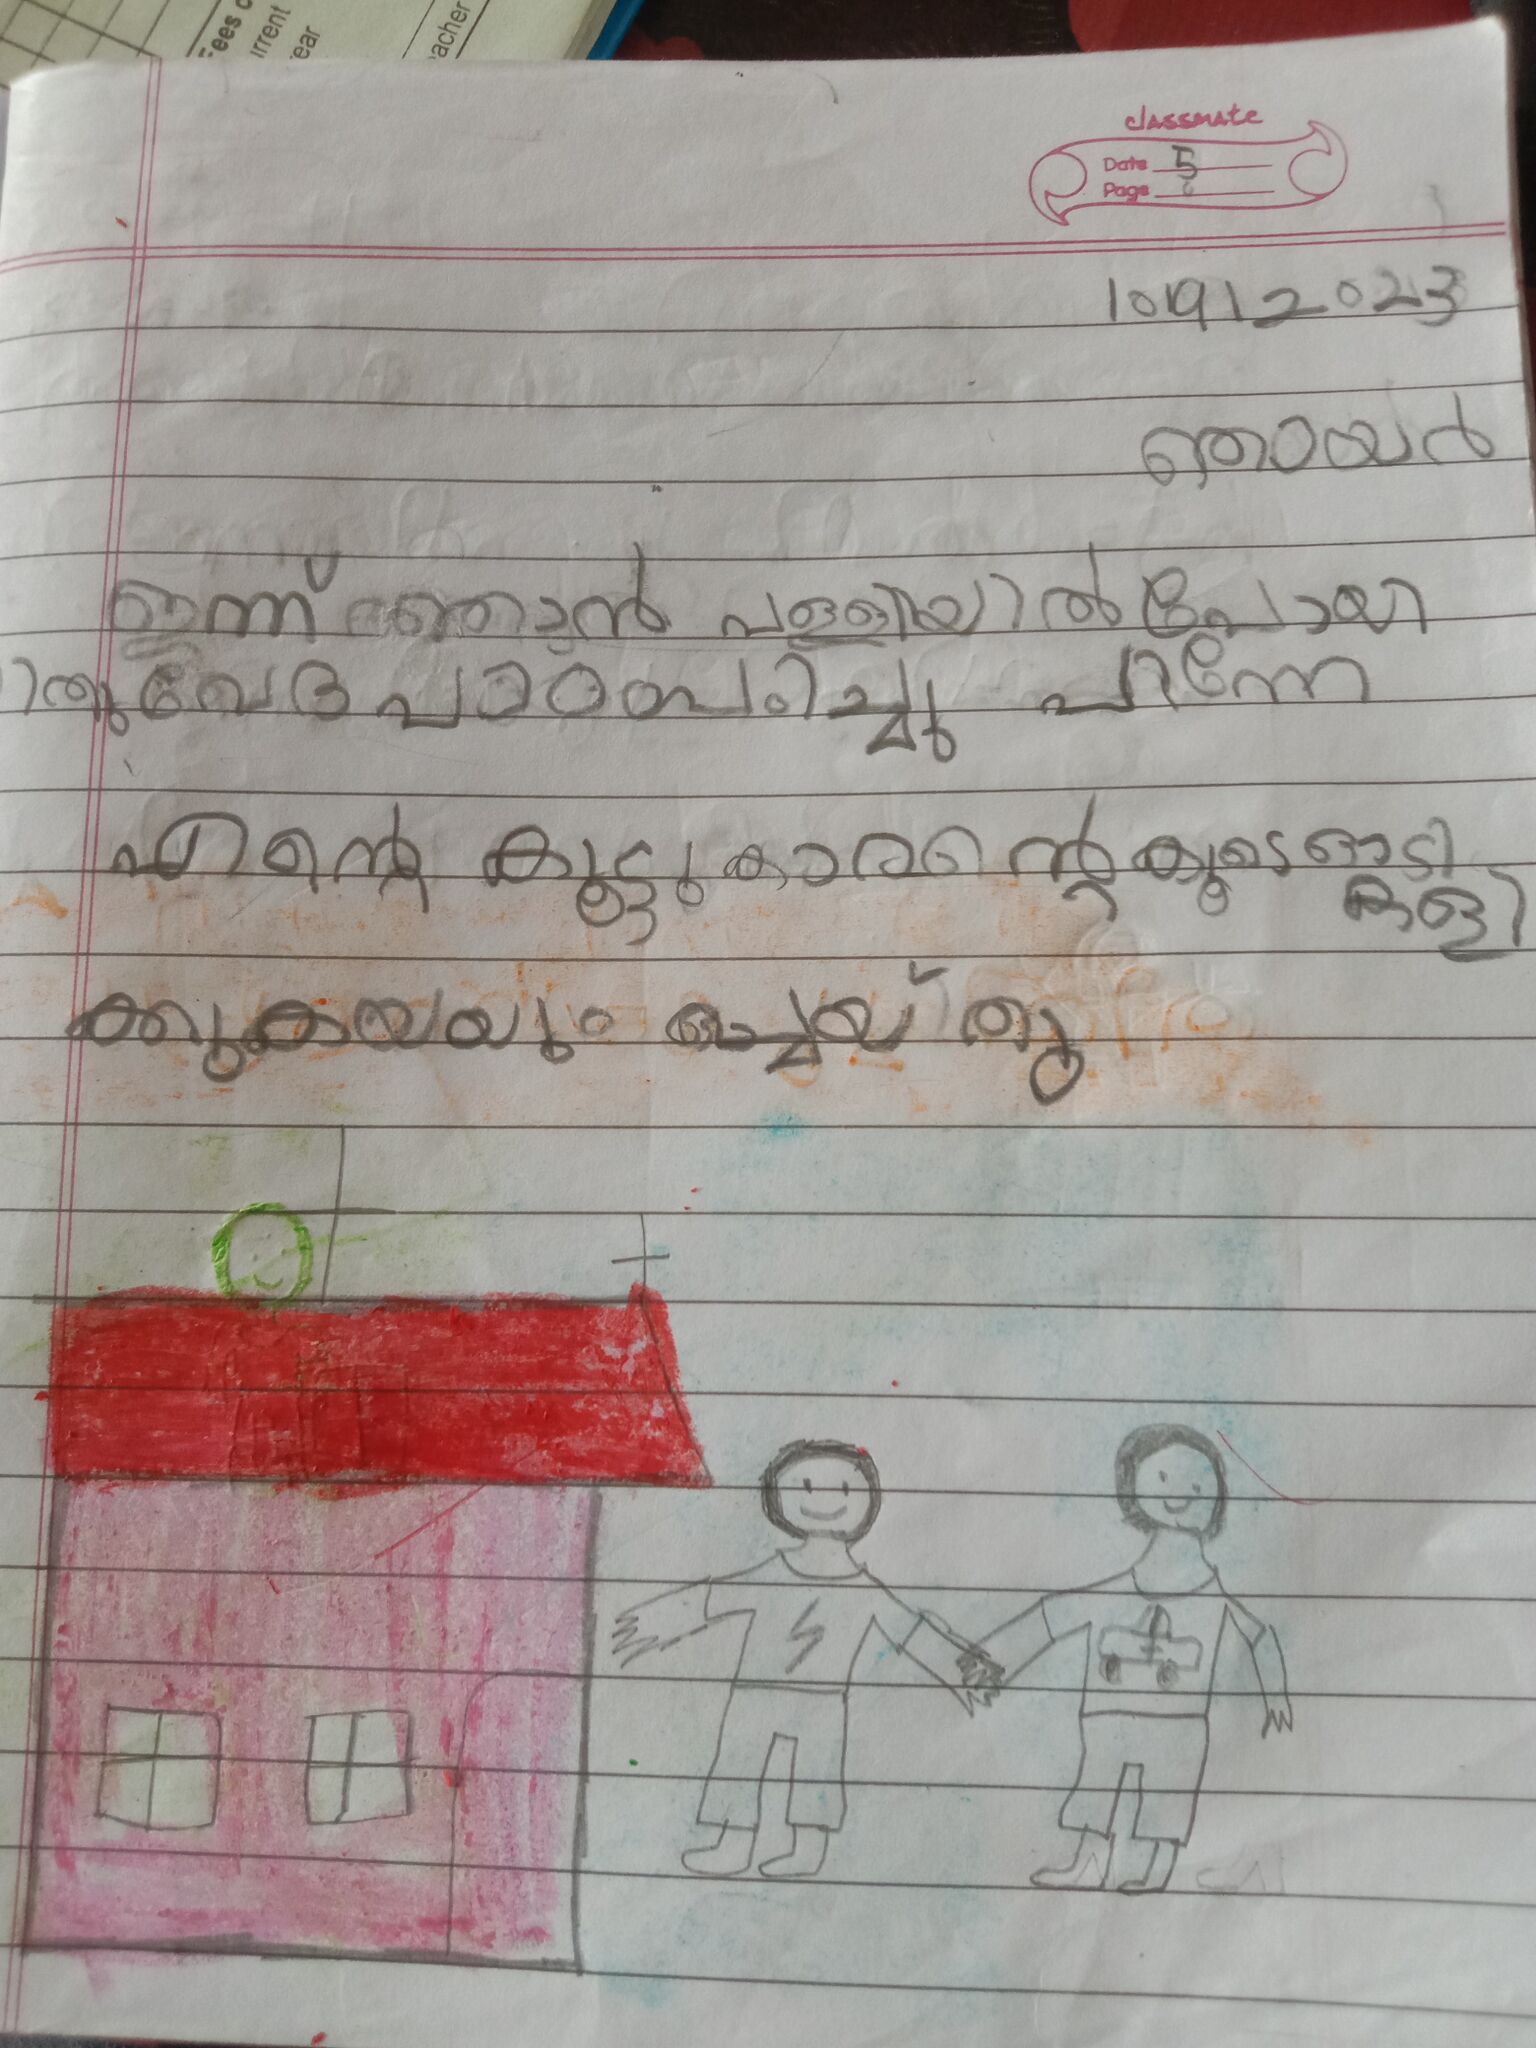 Fees c
urrent
ear
acher
classmate
Date 5
Page
10/9/2023
ഞായർ
ഇന്ന് ഞാൻ പള്ളിയിൽ പോയി
വേദ പാഠം പഠിച്ചു പിന്നേ
എന്റെ കൂട്ടുകാരന്റെ കൂടെ ഓടി
കളി
ക്കുകയയും ചെയ്തു